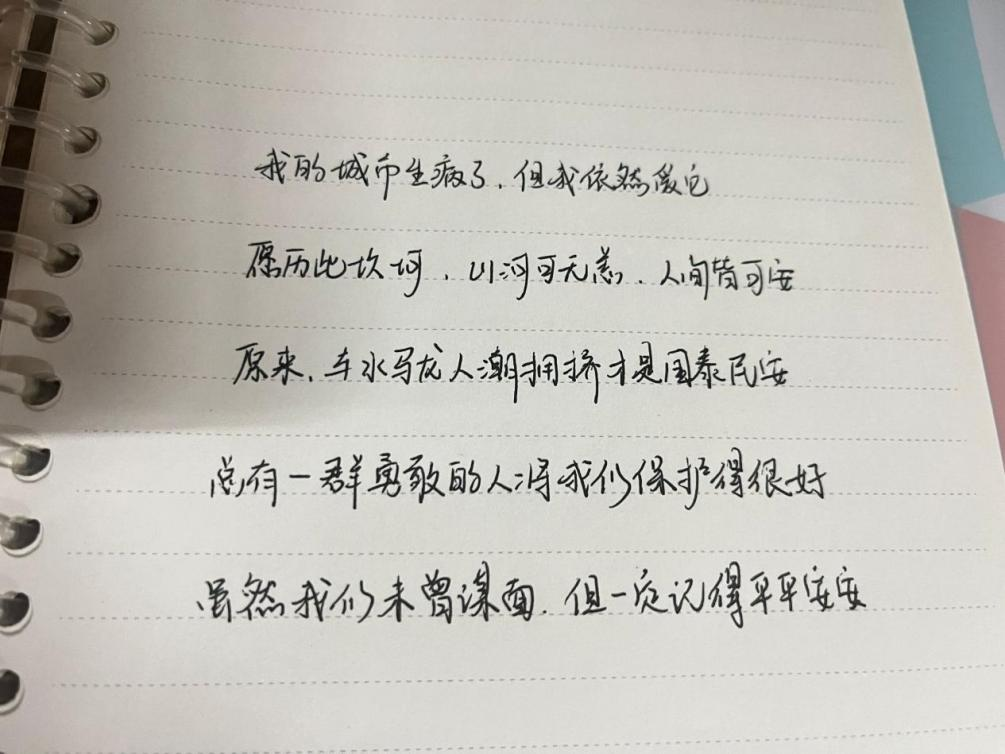 我的城市生病了，但我依然爱它
愿历此坎坷，山河可无恙，人间皆可安
原来，车水马龙人潮拥挤才是国泰民安
总有一群勇敢的人将我们保护得很好
虽然我们未曾谋面，但一定记得平平安安